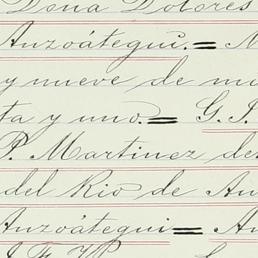 Doña Dolores
Anzoátegui.= 
y nueve de
ta y uno.= G. I.
P. Martinez de
del Rio de An
Anzoátegui= An